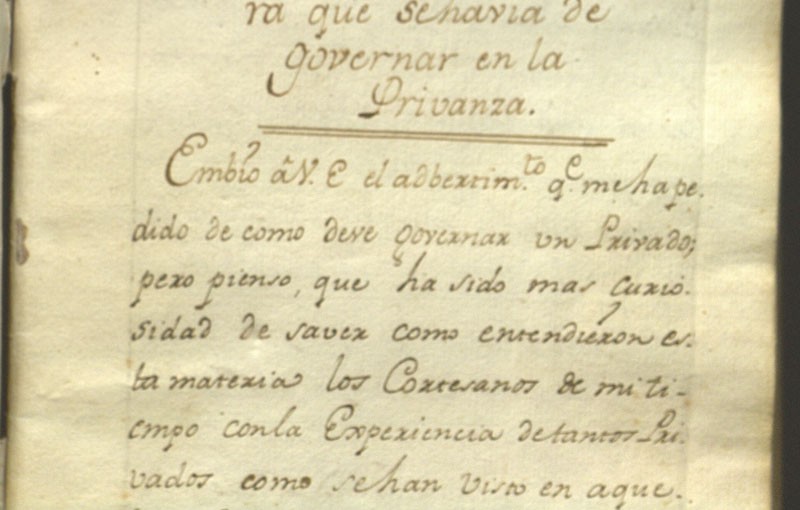 ra que sehavia de
governar en la
Privanza.
Embio â V. E el adbertim.to q.e meha pe.
dido de como deve governar un Privado;
pero pienso, que ha sido mas curio.
sidad de saver como entendieron es.
ta materia los Cortesanos de mi ti-
empo conla Experiencia detantos Pri.
vados como sehan visto en aque.